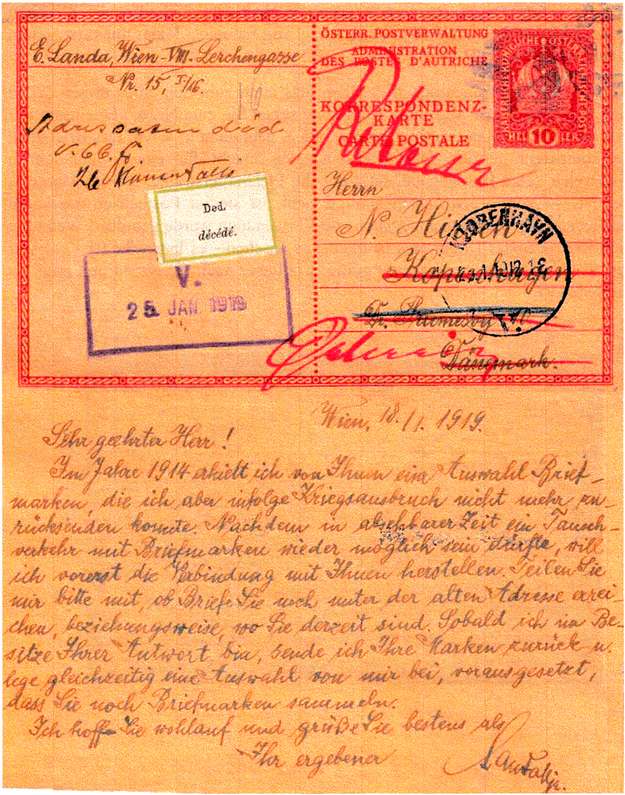 E. Landa, Wien-VIII. Lerchengasse
Nr. 15, I/16.
ÖSTERR. POSTVERWALTUNG
ADMINISTRATION
DES POSTES D'AUTRICHE
KORRESPONDENZ-
KARTE
CARTE POSTALE
10
Retour
død
V. 66.
26
Ded.
décédé.
V.
25. JAN. 1919
Herrn
N.
Kopenhagen
KJØBENHAVN
Dänemark.
Wien, 18./1. 1919.
Sehr geehrter Herr!
Im Jahre 1914 erhielt ich von Ihnen eine Auswahl Brief-
marken, die ich aber infolge Kriegsausbruch nicht mehr zu-
rücksenden konnte. Nachdem in absehbarer Zeit ein Tausch-
verkehr mit Briefmarken wieder möglich sein dürfte, will
ich vorerst die Verbindung mit Ihnen herstellen. Teilen Sie
mir bitte mit, ob Briefe Sie noch unter der alten Adresse errei-
chen, beziehungsweise, wo Sie derzeit sind. Sobald ich im Be-
sitze Ihrer Antwort bin, sende ich Ihre Marken zurück u.
lege gleichzeitig eine Auswahl von mir bei, vorausgesetzt,
dass Sie noch Briefmarken sammeln.
Ich hoffe Sie wohlauf und grüße Sie bestens als
Ihr ergebener